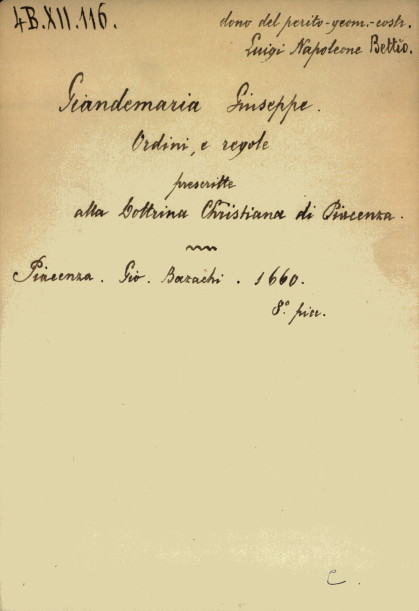 4B.XII.116.
dono del perito-geom.-costr.
Luigi Napoleone Bettio.
Giandemaria Giuseppe.
Ordini, e regole
prescritte
alla Dottrina Christiana di Piacenza.
Piacenza. Gio. Bazachi. 1660.
8.º picc.
C.